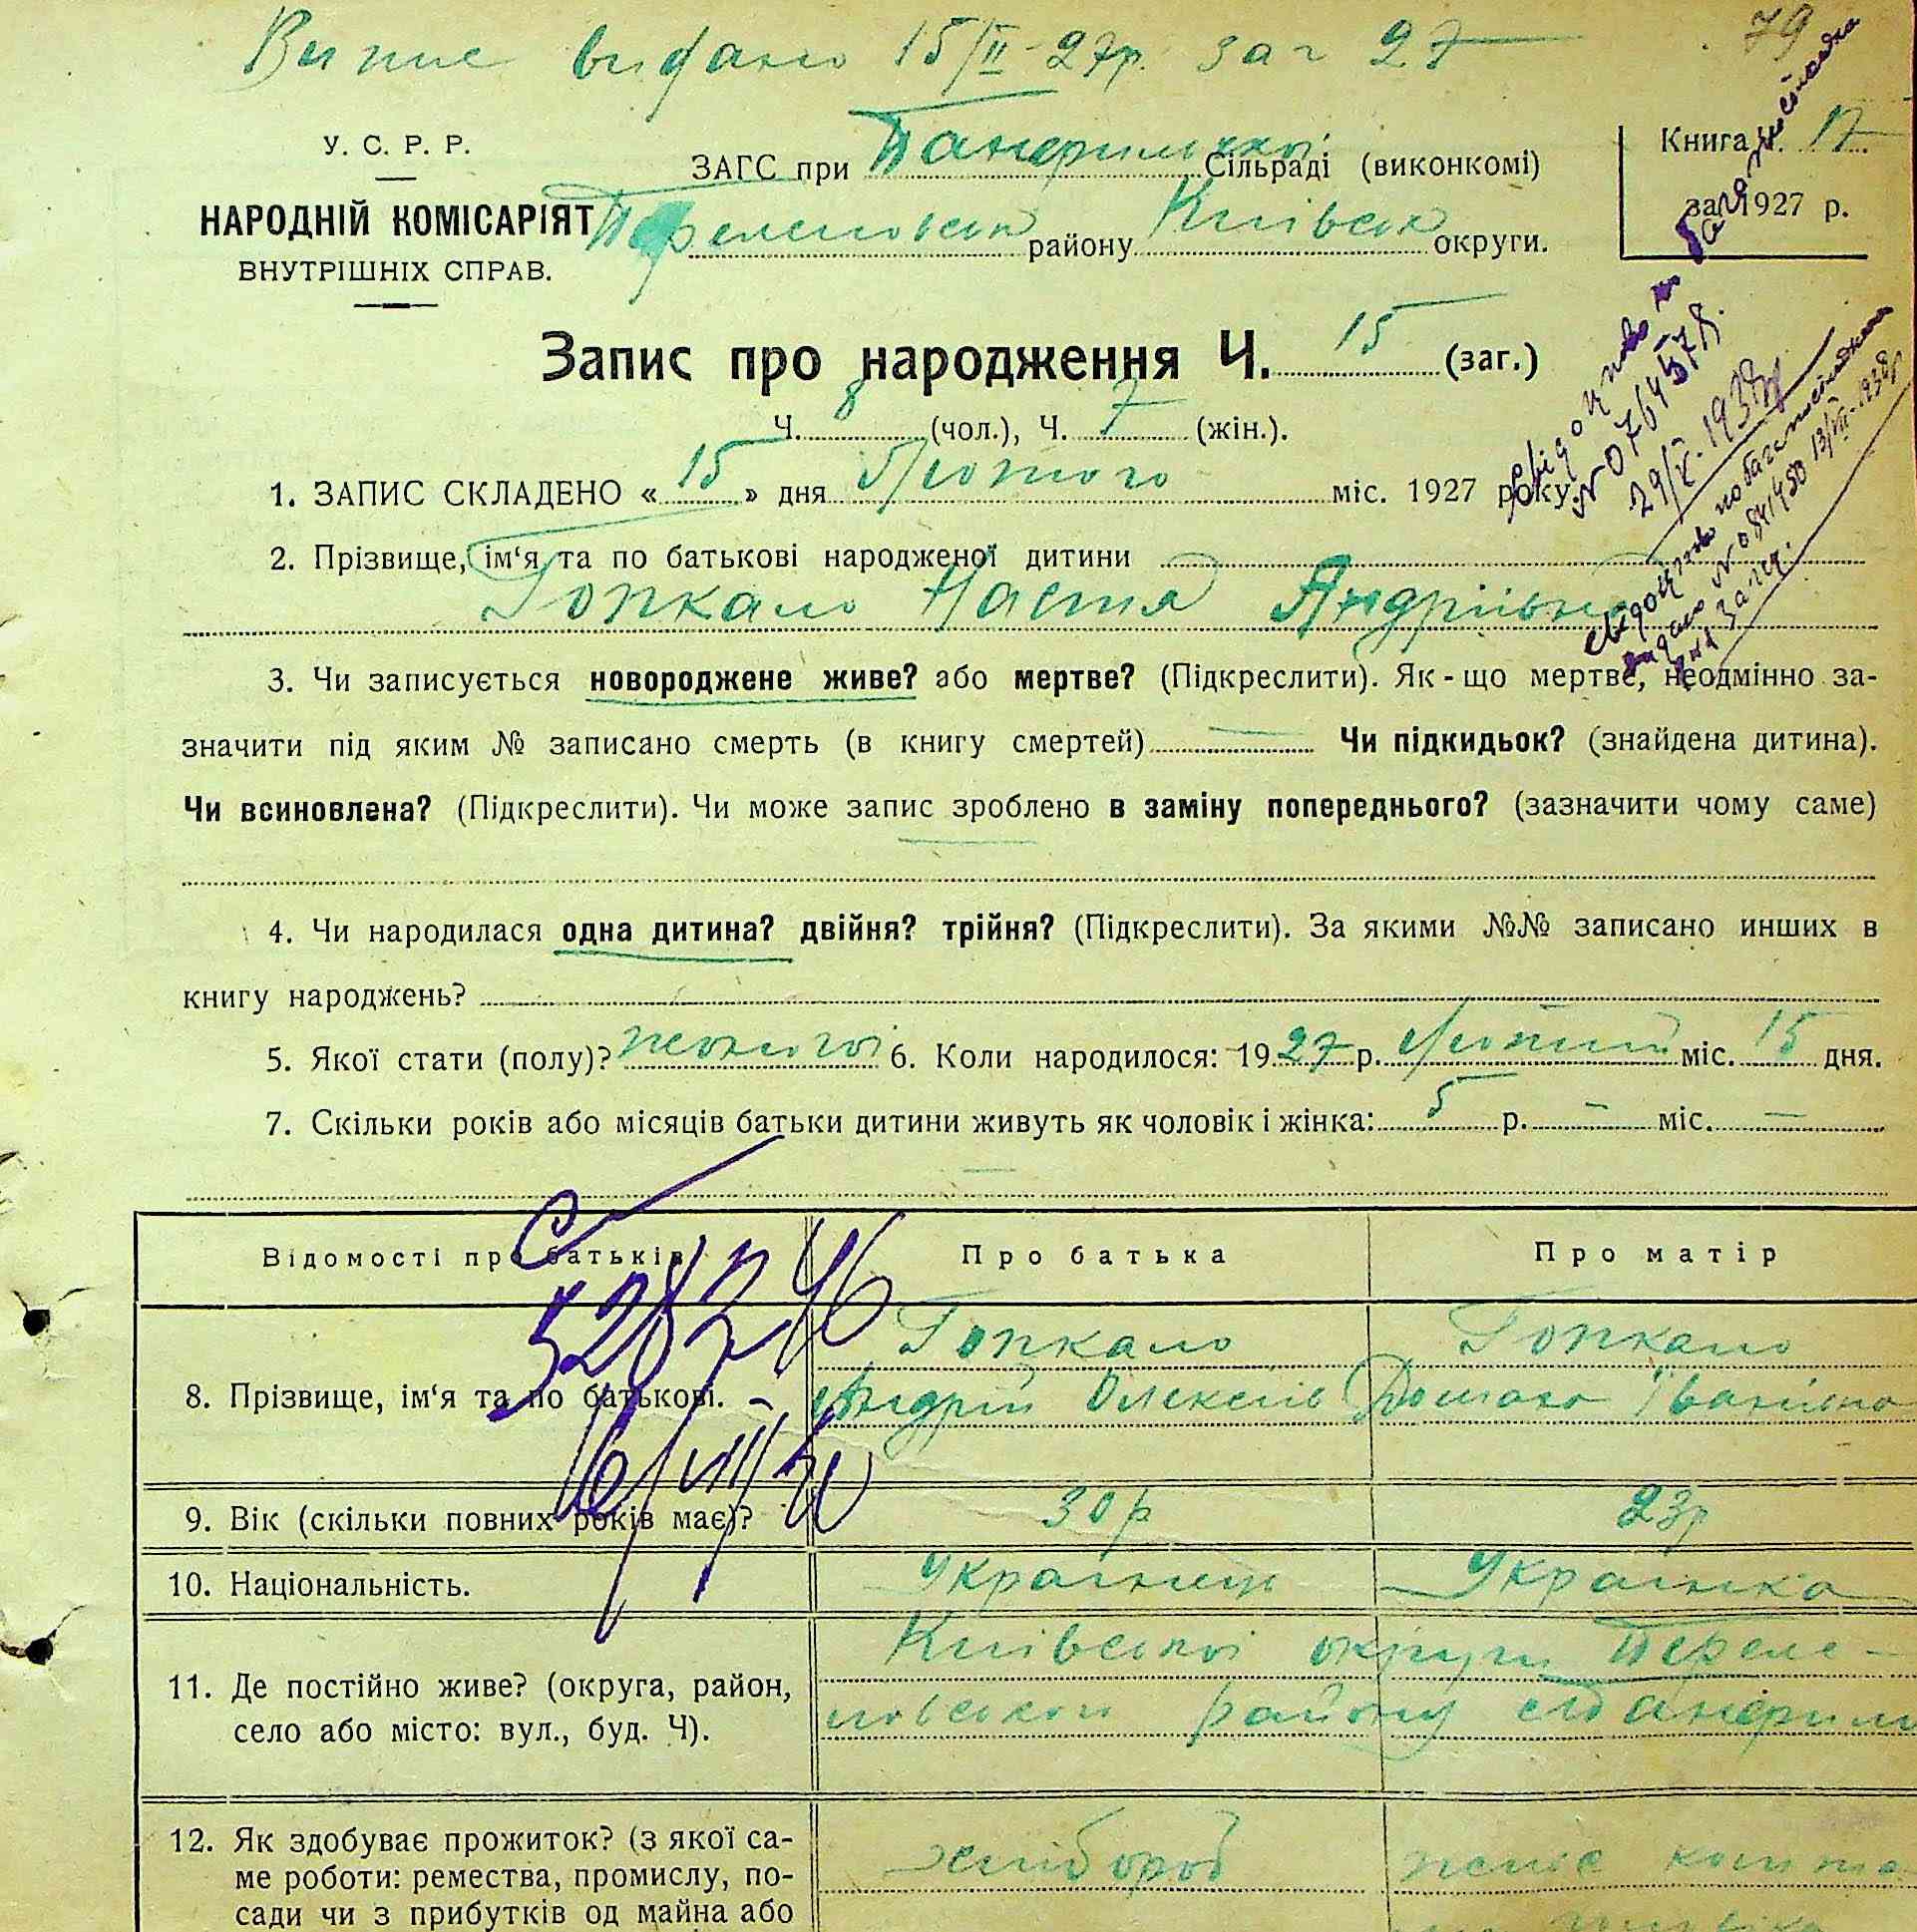 Випис видано 15/II-27р. за ч 27
79
У. С. Р. Р.
НАРОДНІЙ КОМІСАРІЯТ
ВНУТРІШНІХ СПРАВ.
ЗАГС при Панфильской Сільраді (виконкомі)
району Київськ округи.
Книга ч. 17
за 1927 р.
Запис про народження Ч. 15 (заг.)
Ч. 8 (чол.), Ч. 7 (жін.).
1. ЗАПИС СКЛАДЕНО « 15 » дня Лютого міс. 1927 року.
2. Прізвище, ім‘я та по батькові народженої дитини
Гопкало Настя Андріївна
3. Чи записується новороджене живе? або мертве? (Підкреслити). Як-що мертве, неодмінно за-
значити під яким № записано смерть (в книгу смертей) — Чи підкидьок? (знайдена дитина).
Чи всиновлена? (Підкреслити). Чи може запис зроблено в заміну попереднього? (зазначити чому саме)
4. Чи народилася одна дитина? двійня? трійня? (Підкреслити). За якими №№ записано инших в
книгу народжень?
5. Якої стати (полу)? жоночоі 6. Коли народилося: 1927 р. Лютий міс. 15 дня.
7. Скільки років або місяців батьки дитини живуть як чоловік і жінка: 5 р. - міс. —
Відомості про батьків Про батька Про матір
8. Прізвище, ім‘я та по батькові. Гопкало Гопкало
Андрій Олексіїв Іванівна
9. Вік (скільки повних років має)? 30р 23р
10. Національність. Українець Українка
11. Де постійно живе? (округа, район,
село або місто: вул., буд. Ч).
Київської округи
району
12. Як здобуває прожиток? (з якої са-
ме роботи: ремества, промислу, по-
сади чи з прибутків од майна або
хлібороб